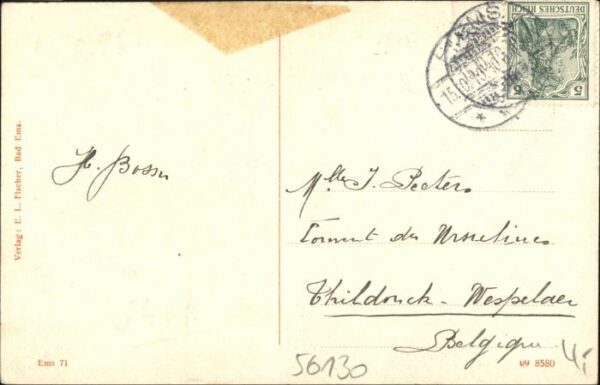 Verlag: E. L. Fischer, Bad Ems.
DEUTSCHES REICH
5 5
EMS
H. Bosser
Mlle J. Peeters
Couvent des Ursulines
Thildonck-Wespelaer
Belgique
Ems 71
56130
8580